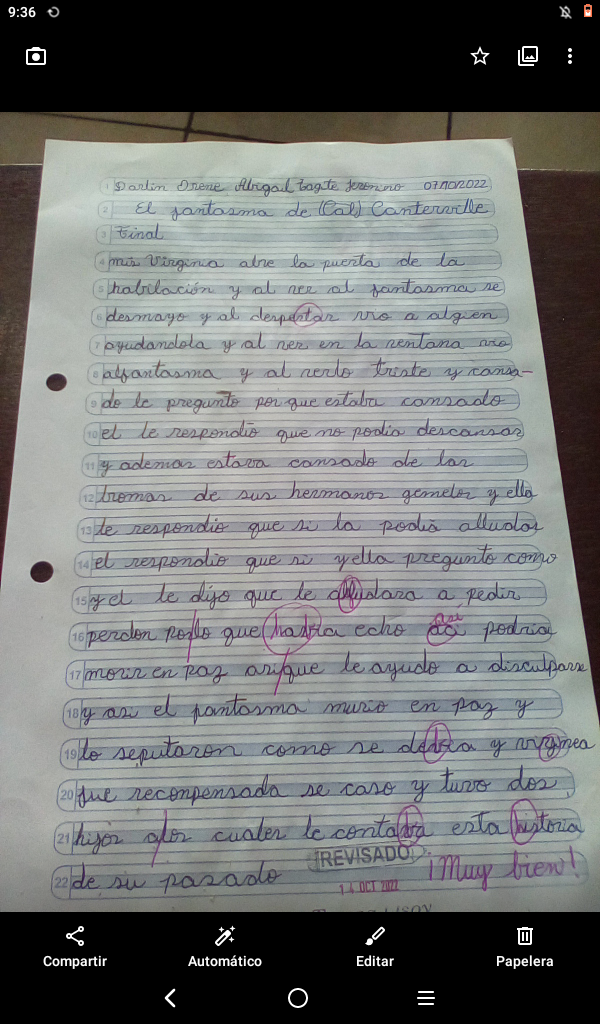 9:36
1 Darlin Irene Abigail Zagte Jeronimo 07/10/2022
2 El fantasma de (Cal) Canterville
3 Final
4 mis Virginia abre la puerta de la
5 habilación y al ver al fantasma se
6 desmayo y al despertar vio a algien
7 ayudandola y al ver en la ventana vio
8 alfantasma y al verlo triste y cansa-
9 do le pregunto por que estaba cansado
10 el le respondio que no podia descansar
11 y ademas estava cansado de las
12 bromas de sus hermanos gemelos y ella
13 le respondio que si la podia alludar
14 el respondio que si y ella pregunto como
15 y el le dijo que le ayudara a pedir
16 perdon porlo que habia echo asi podria
17 morir en paz asi que le ayudo a disculparse
18 y asi el fantasma murio en paz y
19 lo seputaron como se debia y virginea
20 fue reconpensada se caso y tuvo dos
21 hijos alos cuales le contaba esta historia
22 de su pasado
REVISADO
14 OCT 2022
¡Muy bien!
Compartir
Automático
Editar
Papelera